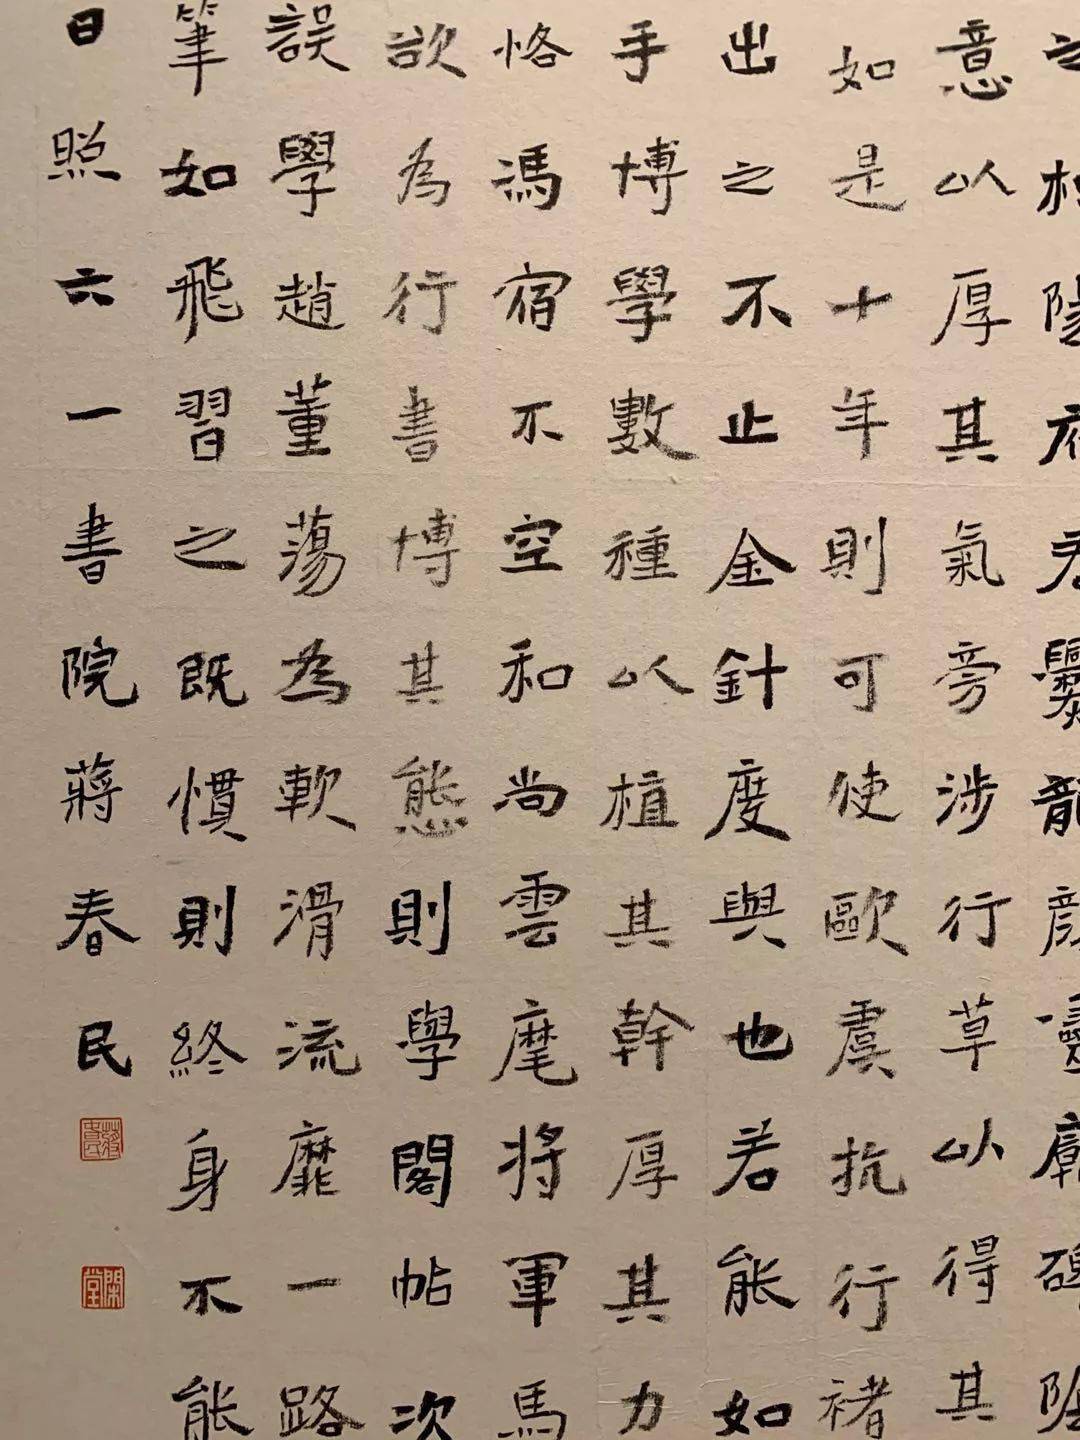 之枳陽府君爨龍顏靈廟碑陰
意以厚其氣旁涉行草以得其
如是十年則可使歐虞抗行褚
出之不止金針度與也若能如
手博學數種以植其幹厚其力
恪馮宿不空和尚雲麾將軍馬
欲為行書博其態則學閣帖次
誤學趙董蕩為軟滑流靡一路
筆如飛習之既慣則終身不能
日照六一書院蔣春民
蔣春民